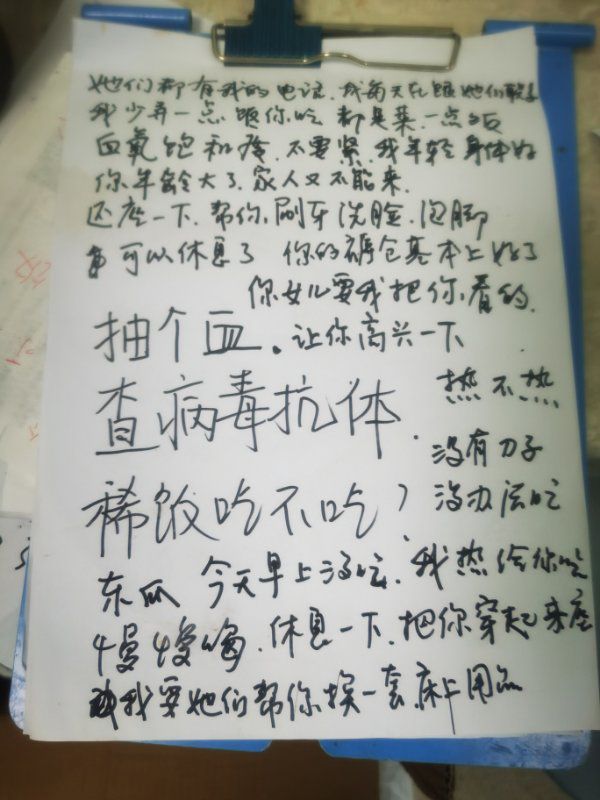 她们都有我的电话.我每天在跟她们联系
我少弄一点饭你吃 都是菜.一点饭
血氧饱和度.不要紧.我年轻身体好
你年龄大了.家人又不能来.
还座一下.帮你.刷牙洗脸.泡脚
可以休息了 你的褥仓基本上好了
你女儿要我把你.看的.
抽个血.让你高兴一下
查病毒抗体. 热不热
没有刀子
稀饭吃不吃? 没办法吃
东瓜 今天早上没吃.我热给你吃
慢慢喝.休息一下.把你穿起来座
我要她们帮你.换一套.床上用品